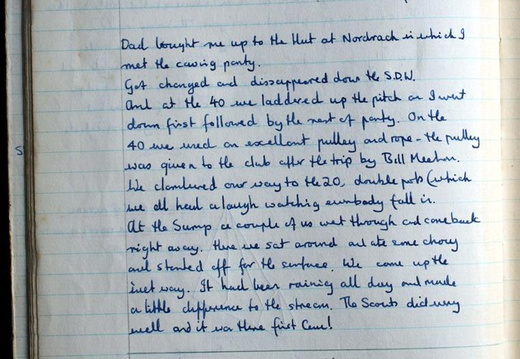 Dad bought me up to the Hut at Nordrach in which I
met the caving party.
Got changed and dissappeared down the S.D.W.
And at the 40 we laddered up the pitch and I went
down first followed by the rest of party. On the
40 we used an excellent pulley and rope - the pulley
was given to the club after the trip by Bill Meehan.
We clambered our way to the 20, double pots (which
we all had a laugh watching everybody fall in.
At the Sump a couple of us wet through and come back
right away. Here we sat around and ate some choccy
and started off for the surface. We came up the
wet way. It had been raining all day and made
a little difference to the stream. The Scouts did very
well and it was there first Cave!
S